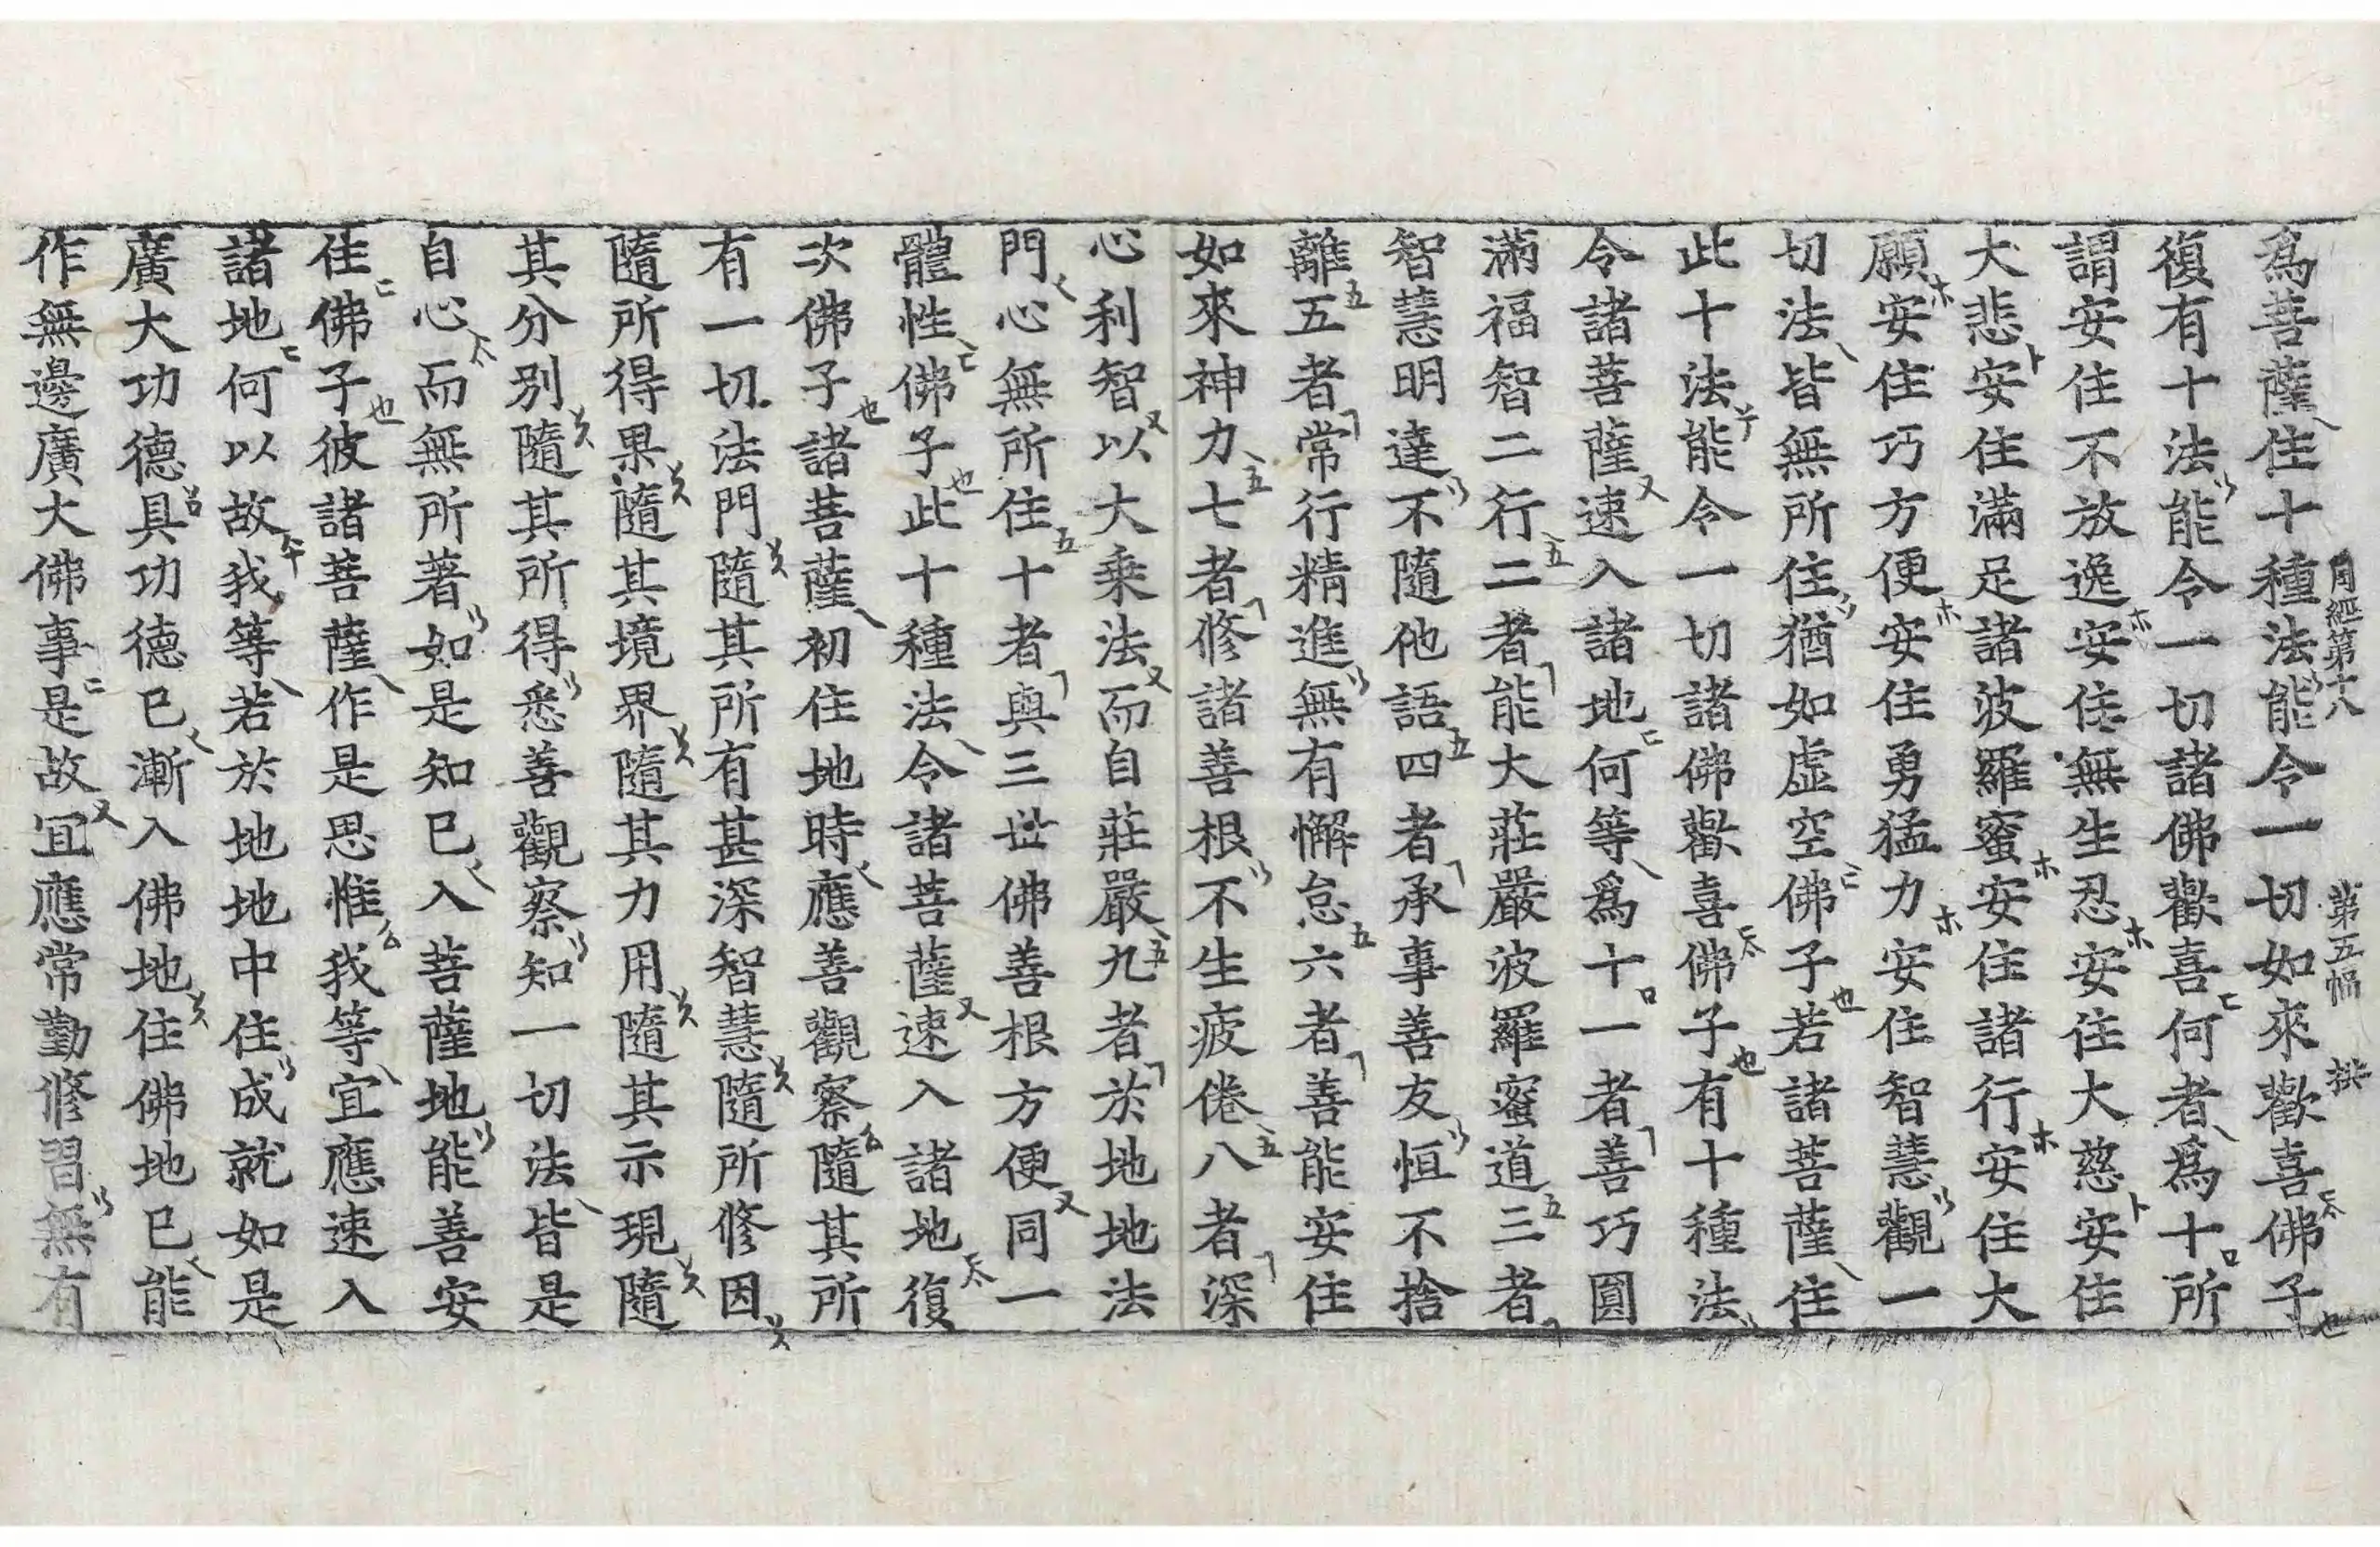 周經第十八 第五幅
爲菩薩住十種法能令一切如來歡喜佛子
復有十法能令一切諸佛歡喜何者爲十所
謂安住不放逸安住無生忍安住大慈安住
大悲安住滿足諸波羅蜜安住諸行安住大
願安住巧方便安住勇猛力安住智慧觀一
切法皆無所住猶如虛空佛子若諸菩薩住
此十法能令一切諸佛歡喜佛子有十種法
令諸菩薩速入諸地何等爲十一者善巧圓
滿福智二行二者能大莊嚴波羅蜜道三者
智慧明達不隨他語四者承事善友恒不捨
離五者常行精進無有懈怠六者善能安住
如來神力七者修諸善根不生疲倦八者深
心利智以大乘法而自莊嚴九者於地地法
門心無所住十者與三世佛善根方便同一
體性佛子此十種法令諸菩薩速入諸地復
次佛子諸菩薩初住地時應善觀察隨其所
有一切法門隨其所有甚深智慧隨所修因
隨所得果隨其境界隨其力用隨其示現隨
其分別隨其所得悉善觀察知一切法皆是
自心而無所著如是知已入菩薩地能善安
住佛子彼諸菩薩作是思惟我等宜應速入
諸地何以故我等若於地地中住成就如是
廣大功德具功德已漸入佛地住佛地已能
作無邊廣大佛事是故宜應常勤修習無有